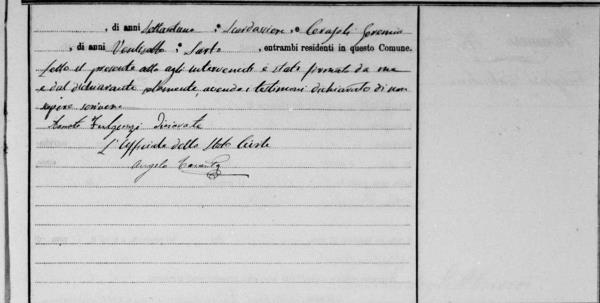 , di anni settantuno, Scardassiere, e Cerasoli Geremia
, di anni Ventisette, Sarto, entrambi residenti in questo Comune.
Letto il presente atto agli intervenuti è stato firmato da me
e dal dichiarante solamente, avendo i testimoni dichiarato di non
sapere scrivere
Fulgenzi
L'Ufficiale dello Stato Civile
Angelo